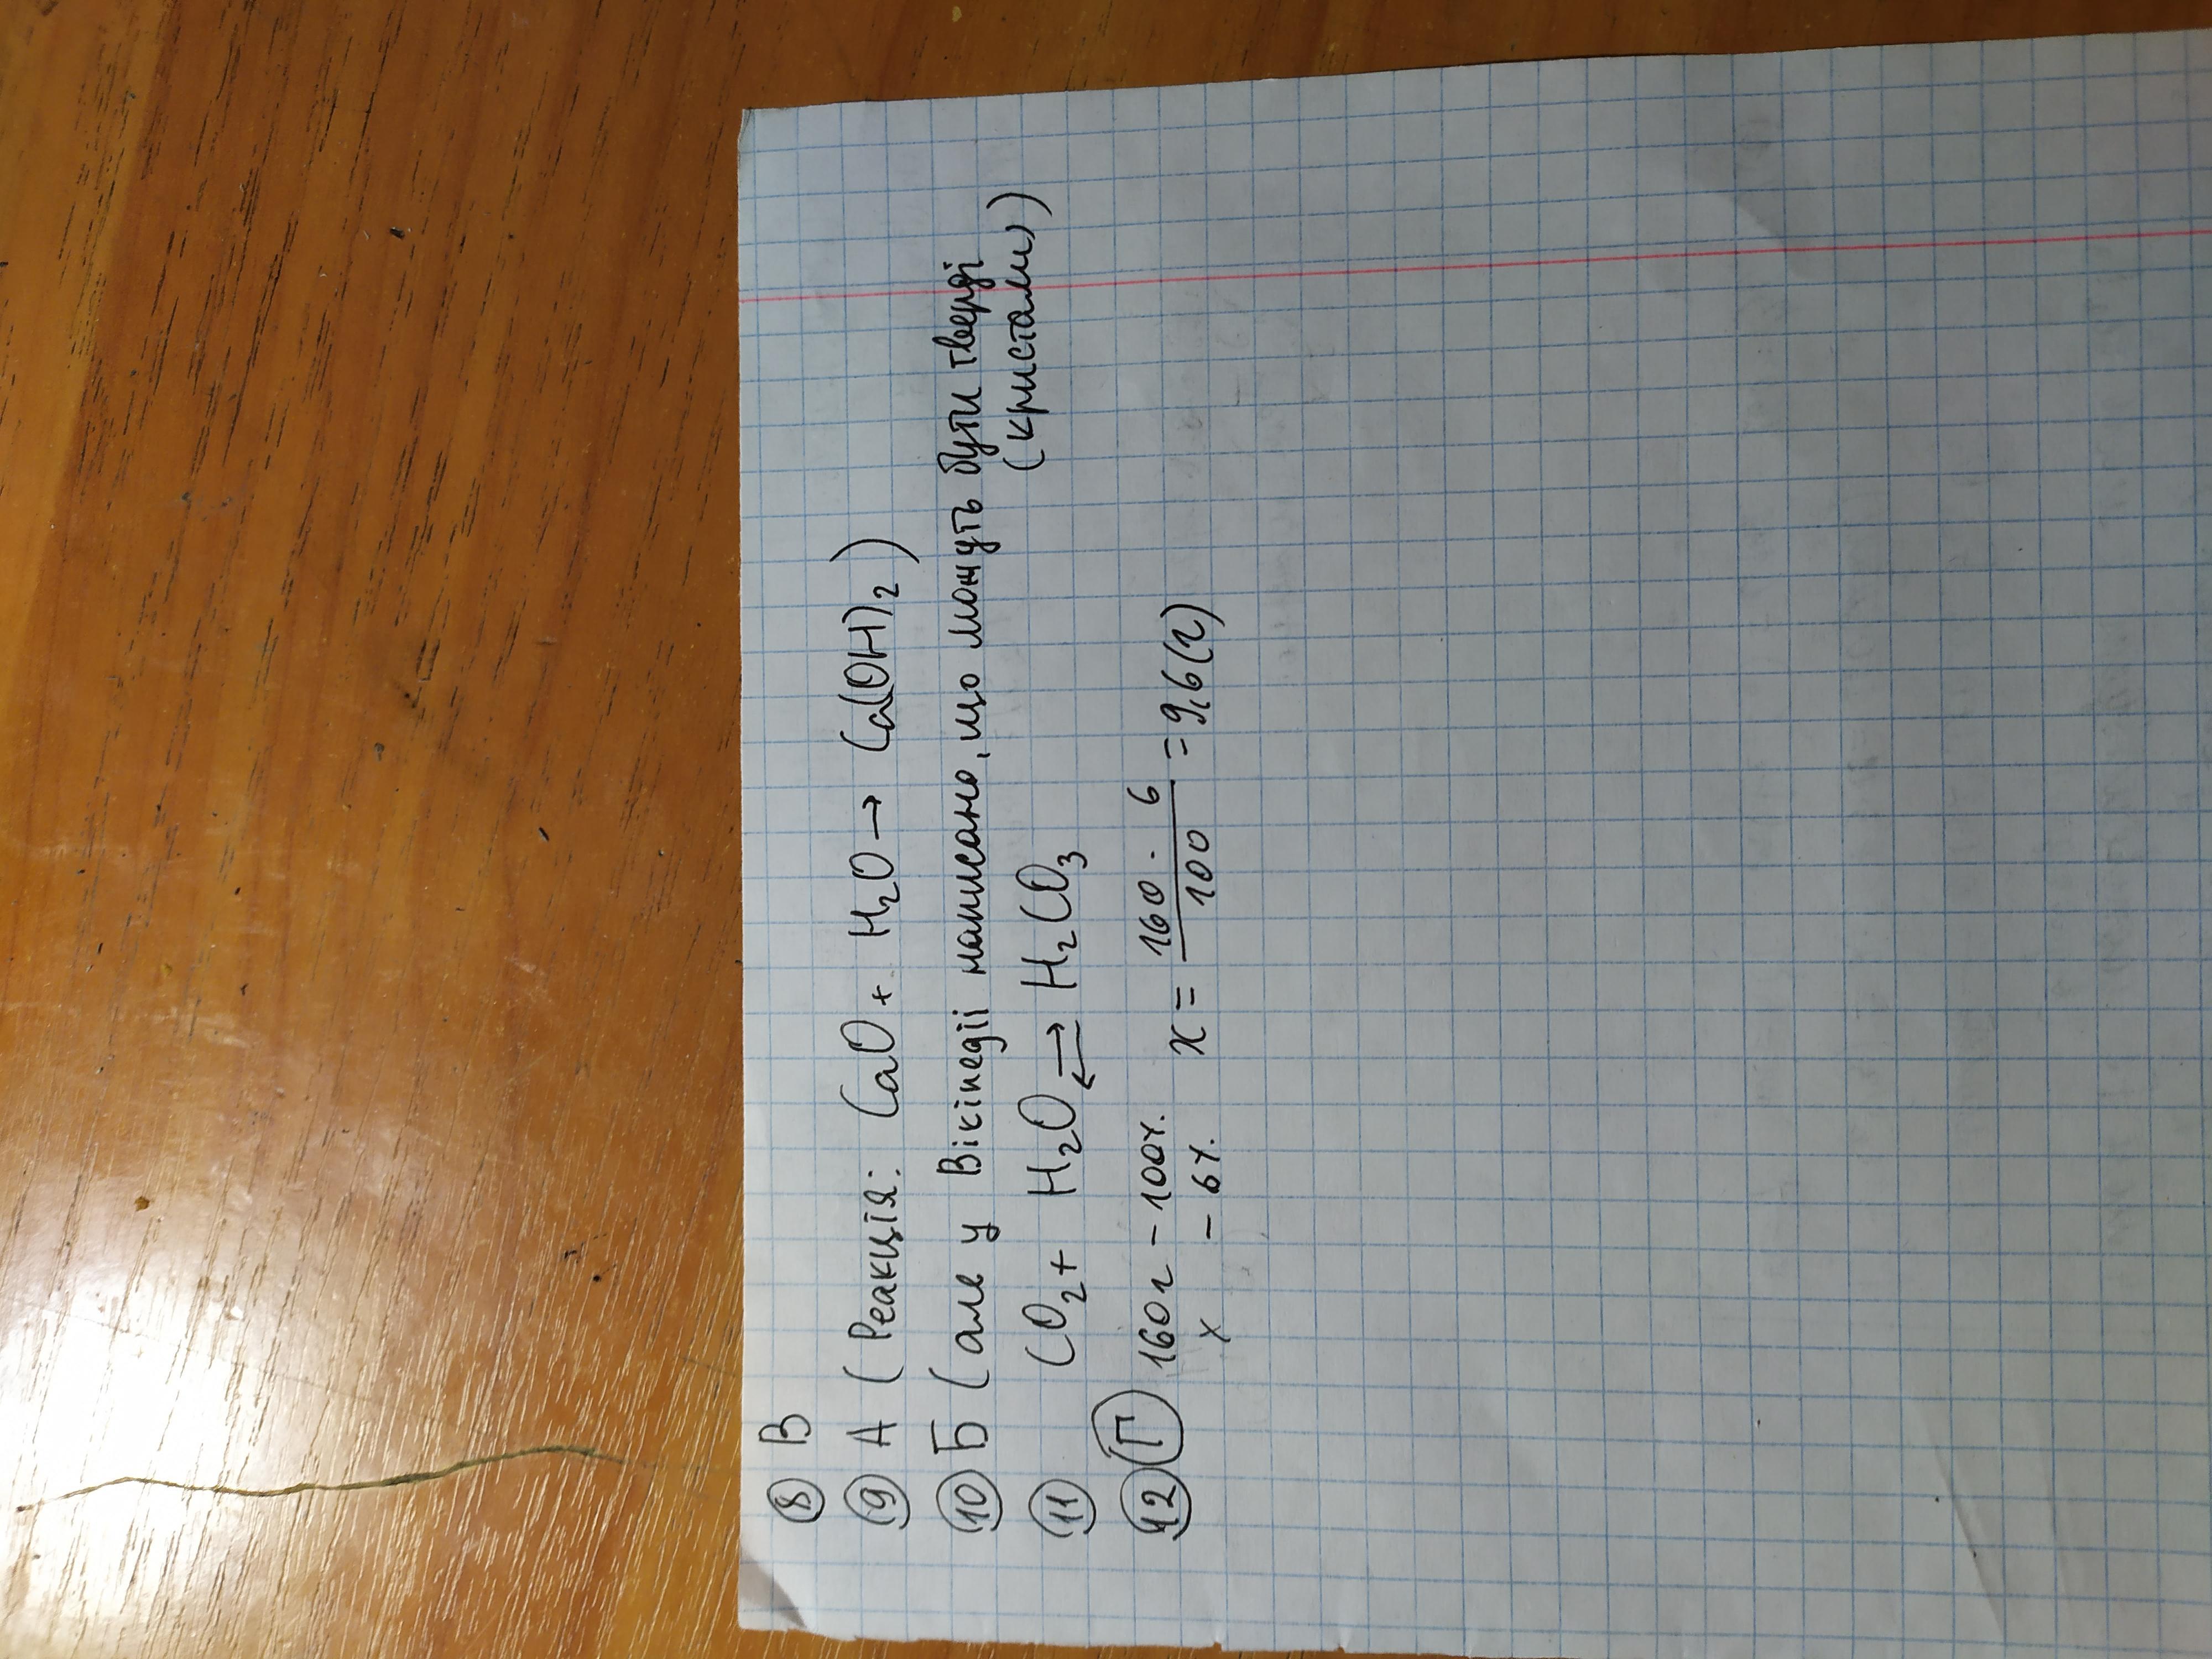 8 В
9 А (Реакція: CaO + H₂O → Ca(OH)₂)
10 Б (але у Вікіпедії написано, що можуть бути тверді
(кристали)
11 CO₂ + H₂O ⇄ H₂CO₃
12 Г 160 г – 100% x = 160 · 6 / 100 = 9,6 (г)
x – 6%